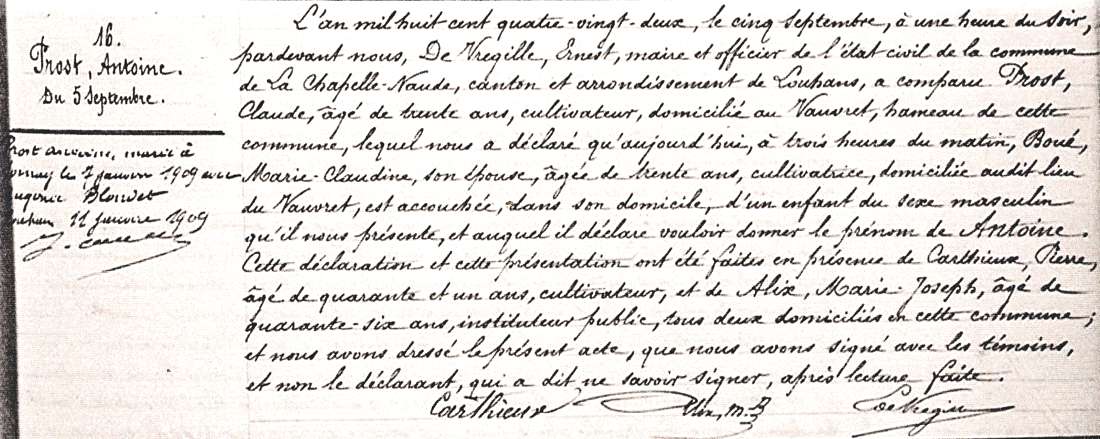 16.
Prost, Antoine.
Du 5 Septembre.
marié à
le 7 janvier 1909 avec
Blondet
11 janvier 1909
L'an mil huit cent quatre-vingt-deux, le cinq septembre, à une heure du soir,
pardevant nous, De Vregille, Ernest, maire et officier de l'état civil de la commune
de La Chapelle-Naude, canton et arrondissement de Louhans, a comparu Prost,
Claude, âgé de trente ans, cultivateur, domicilié au Vauvret, hameau de cette
commune, lequel nous a déclaré qu'aujourd'hui, à trois heures du matin, Boué,
Marie-Claudine, son épouse, âgée de trente ans, cultivatrice, domiciliée audit lieu
du Vauvret, est accouchée, dans son domicile, d'un enfant du sexe masculin
qu'il nous présente, et auquel il déclare vouloir donner le prénom de Antoine.
Cette déclaration et cette présentation ont été faites en présence de Carthieux, Pierre,
âgé de quarante et un ans, cultivateur, et de Alix, Marie-Joseph, âgé de
quarante-six ans, instituteur public, tous deux domiciliés en cette commune;
et nous avons dressé le présent acte, que nous avons signé avec les témoins,
et non le déclarant, qui a dit ne savoir signer, après lecture faite.
Carthieux Alix, m. J. DeVregille